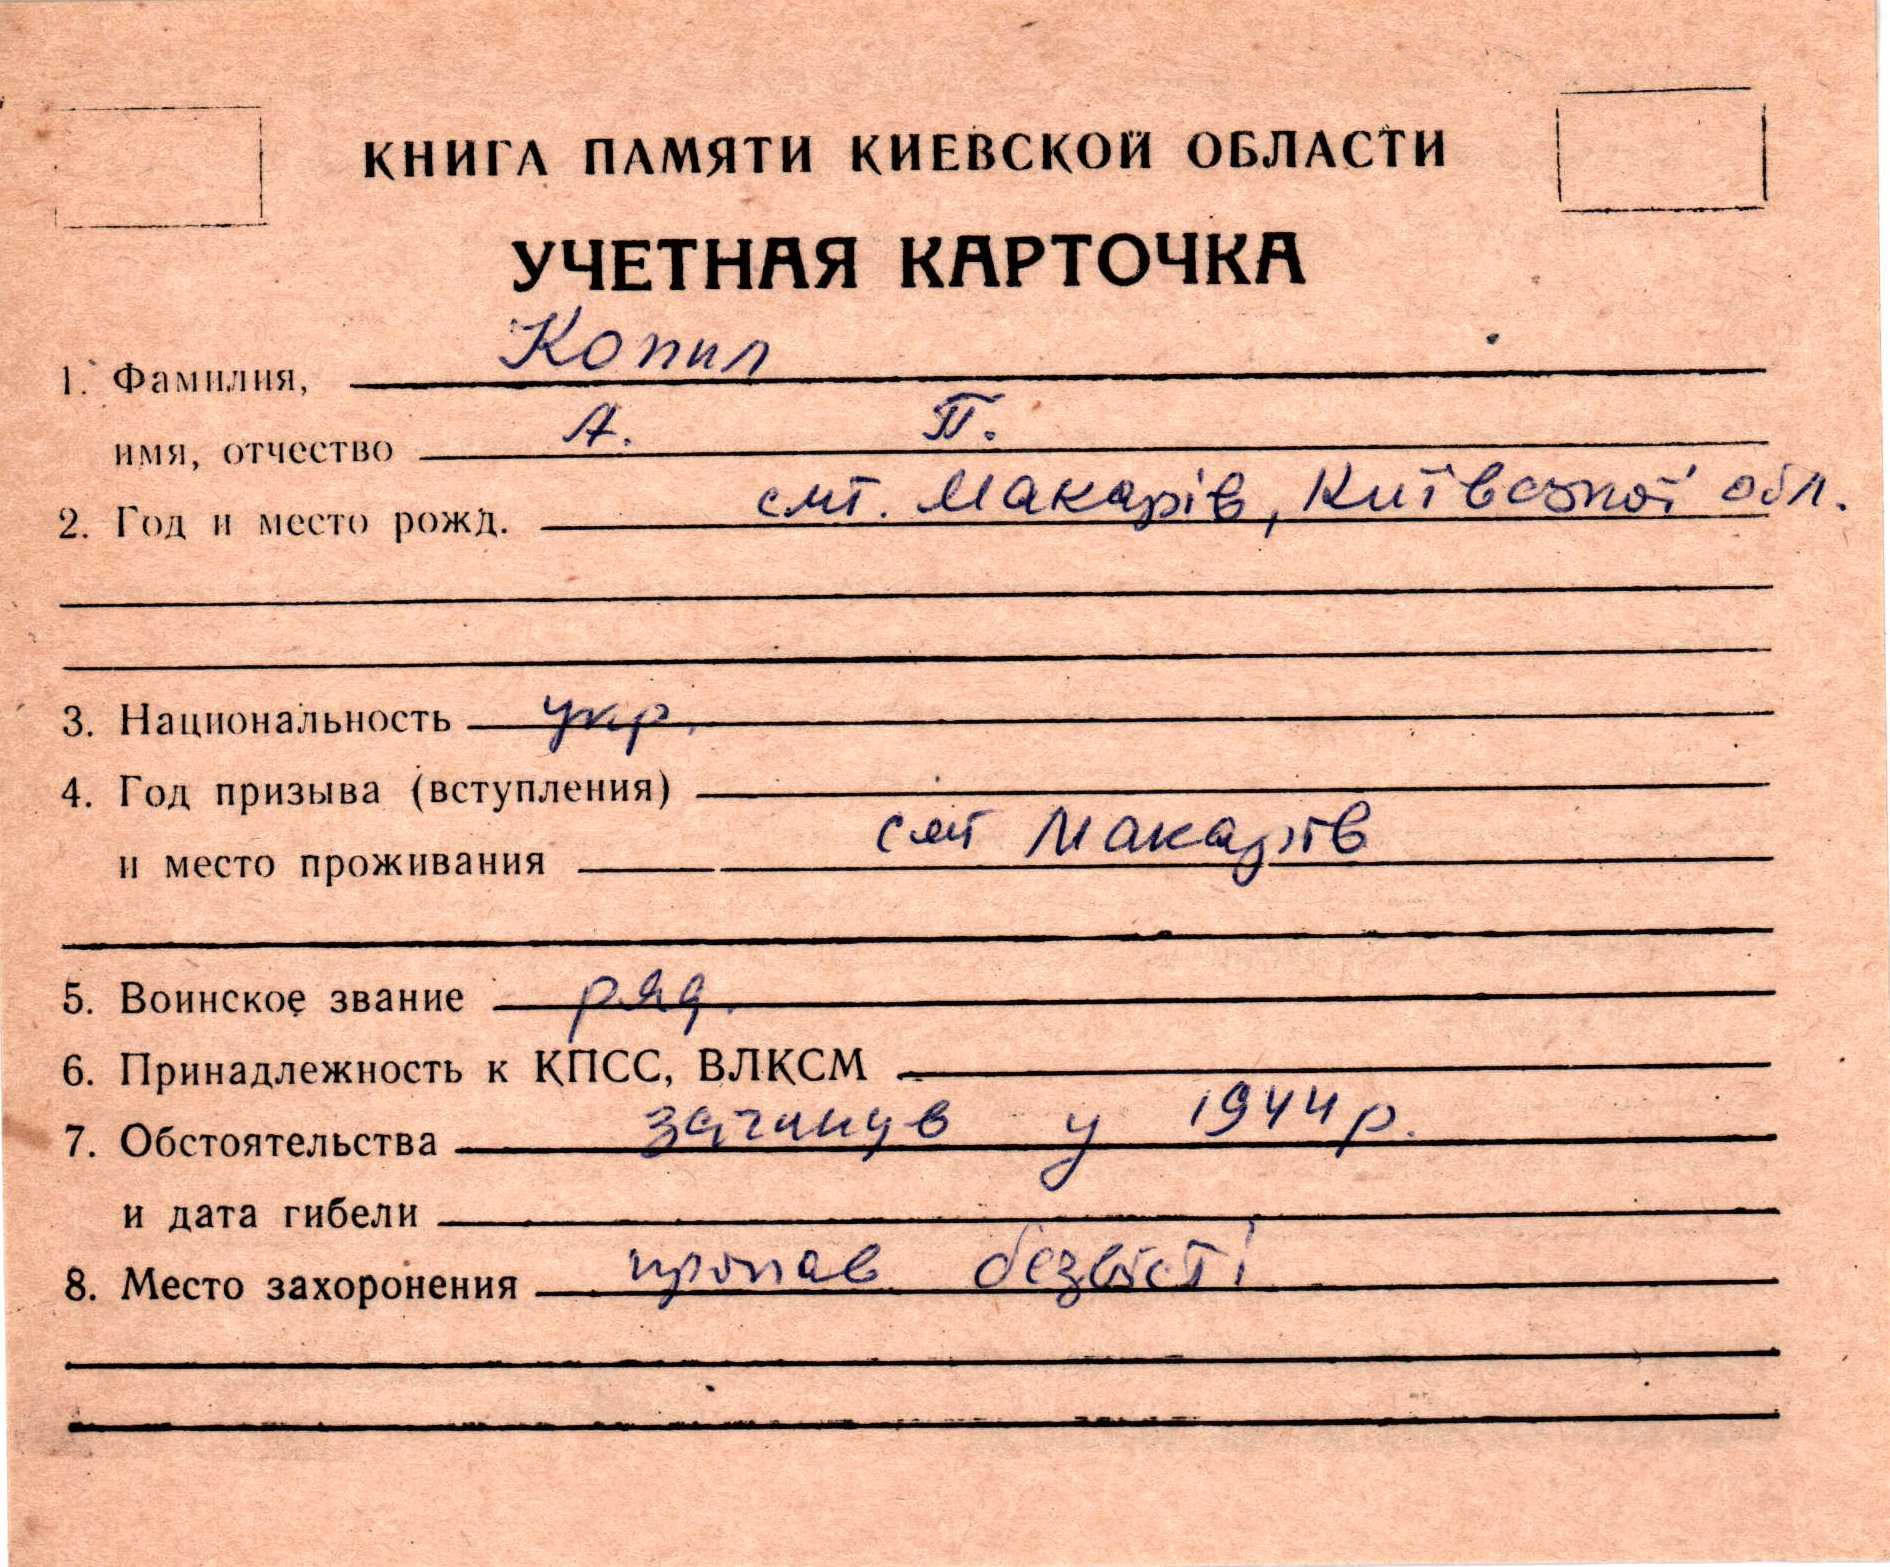 КНИГА ПАМЯТИ КИЕВСКОЙ ОБЛАСТИ
УЧЕТНАЯ КАРТОЧКА
1. Фамилия, Копил
имя, отчество А. П.
2. Год и место рожд. смт. Макарів, Київської обл.
3. Национальность укр.
4. Год призыва (вступления)
и место проживания смт Макарів
5. Воинское звание ряд.
6. Принадлежность к КПСС, ВЛКСМ
7. Обстоятельства загинув у 1944 р.
и дата гибели
8. Место захоронения пропав безвісті